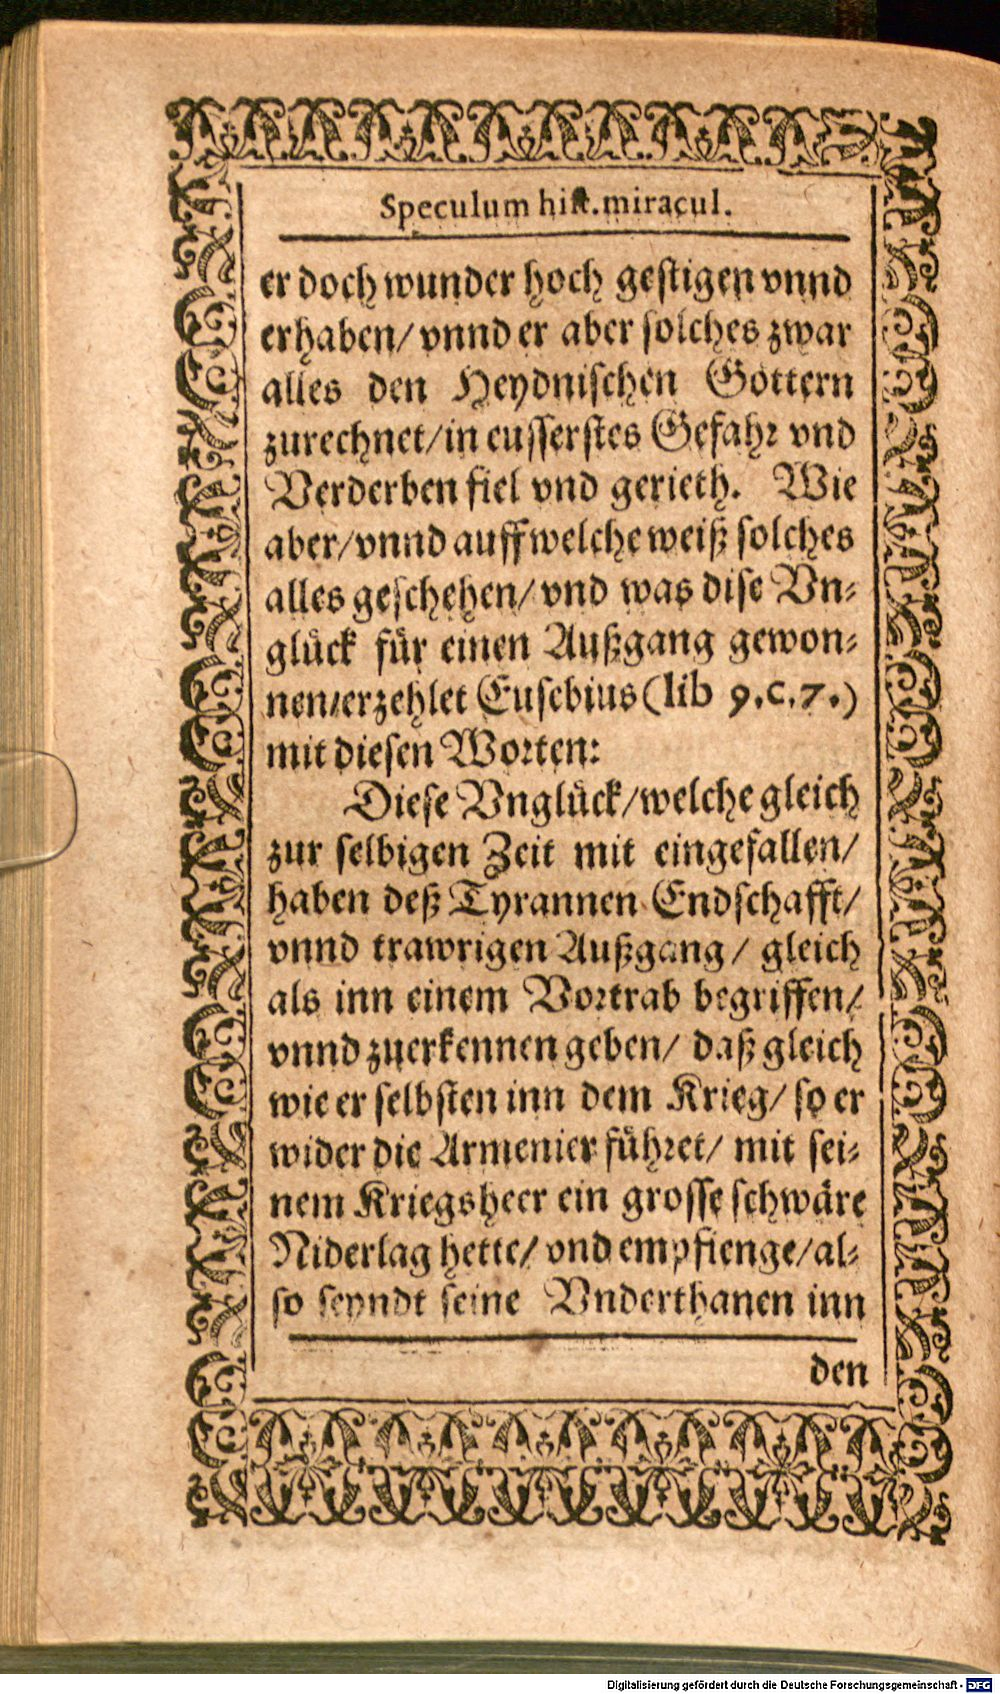 Speculum hist.miracul.
er doch wunder hoch gestigen vnnd
erhaben/ vnnd er aber solches zwar
alles den Heydnischen Göttern
zurechnet/in eusserstes Gefahr vnd
Verderben fiel vnd gerieth. Wie
aber/vnnd auff welche weiß solches
alles geschehen/ vnd was dise Vn-
glück für einen Außgang gewon-
nen/erzehlet Eusebius (lib 9.c.7.)
mit diesen Worten:
Diese Vnglück/welche gleich
zur selbigen Zeit mit eingefallen/
haben deß Tyrannen Endschafft/
vnnd trawrigen Außgang/ gleich
als inn einem Vortrab begriffen/
vnnd zuerkennen geben/ daß gleich
wie er selbsten inn dem Krieg/ so er
wider die Armenier führet/ mit sei-
nem Kriegsheer ein grosse schwäre
Niderlag hette/ vnd empfienge/al-
so seyndt seine Vnderthanen inn
den
Digitalisierung gefördert durch die Deutsche Forschungsgemeinschaft - DFG